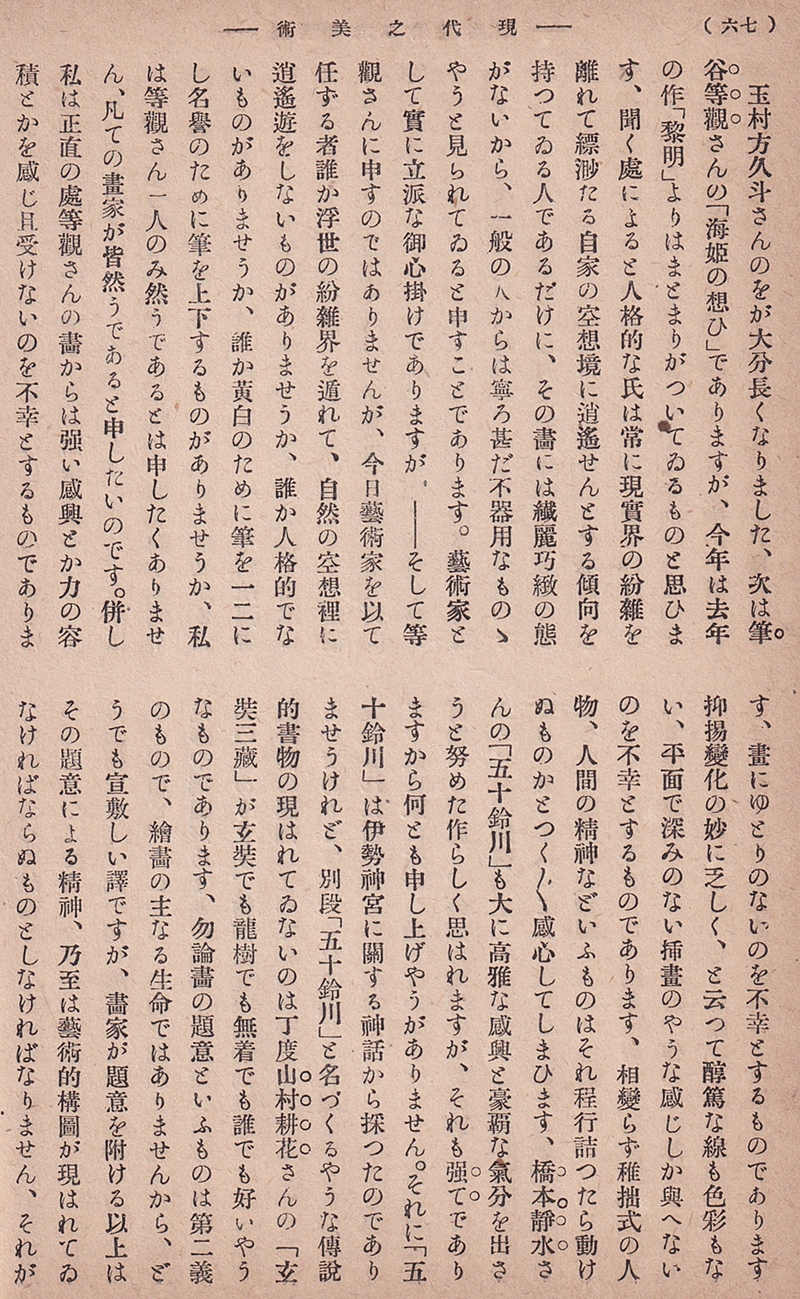 (七六)
── 現代之美術 ──
玉村方久斗さんのをが大分長くなりました、次は筆
谷等觀さんの「海姫の想ひ」でありますが、今年は去年
の作「黎明」よりはまとまりがついてゐるものと思ひま
す、聞く處によると人格的な氏は常に現實界の紛雜を
離れて縹渺たる自家の空想境に逍遙せんとする傾向を
持つてゐる人であるだけに、その畵には纎麗巧緻の態
がないから、一般の人からは寧ろ甚だ不器用なものゝ
やうと見られてゐると申すことであります。藝術家と
して實に立派な御心掛けでありますが、――そして等
觀さんに申すのではありませんが、今日藝術家を以て
任ずる者誰か浮世の紛雜界を遁れて、自然の空想裡に
逍遙遊をしないものがありませうか、誰か人格的でな
いものがありませうか、誰か黃白のために筆を一二に
し名譽のために筆を上下するものがありませうか、私
は等觀さん一人のみ然うであるとは申したくありませ
ん、凡ての畫家が皆然うであると申したいのです。併し
私は正直の處等觀さんの畵からは强い感興とか力の容
積とかを感じ且受けないのを不幸とするものでありま
す、畵にゆとりのないのを不幸とするものであります
抑揚變化の妙に乏しく、と云つて醇篤な線も色彩もな
い、平面で深みのない揷畫のやうな感じしか與へない
のを不幸とするものであります、相變らず稚拙式の人
物、人間の精神などいふものはそれ程行詰つたら動け
ぬものかとつく〲感心してしまひます、橋本靜水さ
んの「五十鈴川」も大に高雅な感興と豪覇な氣分を出さ
うと努めた作らしく思はれますが、それも强てであり
ますから何とも申し上げやうがありません。それに「五
十鈴川」は伊勢神宮に關する神話から採つたのであり
ませうけれど、別段「五十鈴川」と名づくるやうな傳說
的書物の現はれてゐないのは丁度山村耕花さんの「玄
奘三藏」が玄奘でも龍樹でも無着でも誰でも好いやう
なものであります、勿論畵の題意といふものは第二義
のもので、繪畵の主なる生命ではありませんから、ど
うでも宣敷しい譯ですが、畫家が題意を附ける以上は
その題意による精神、乃至は藝術的構圖が現はれてゐ
なければならぬものとしなければなりません、それが